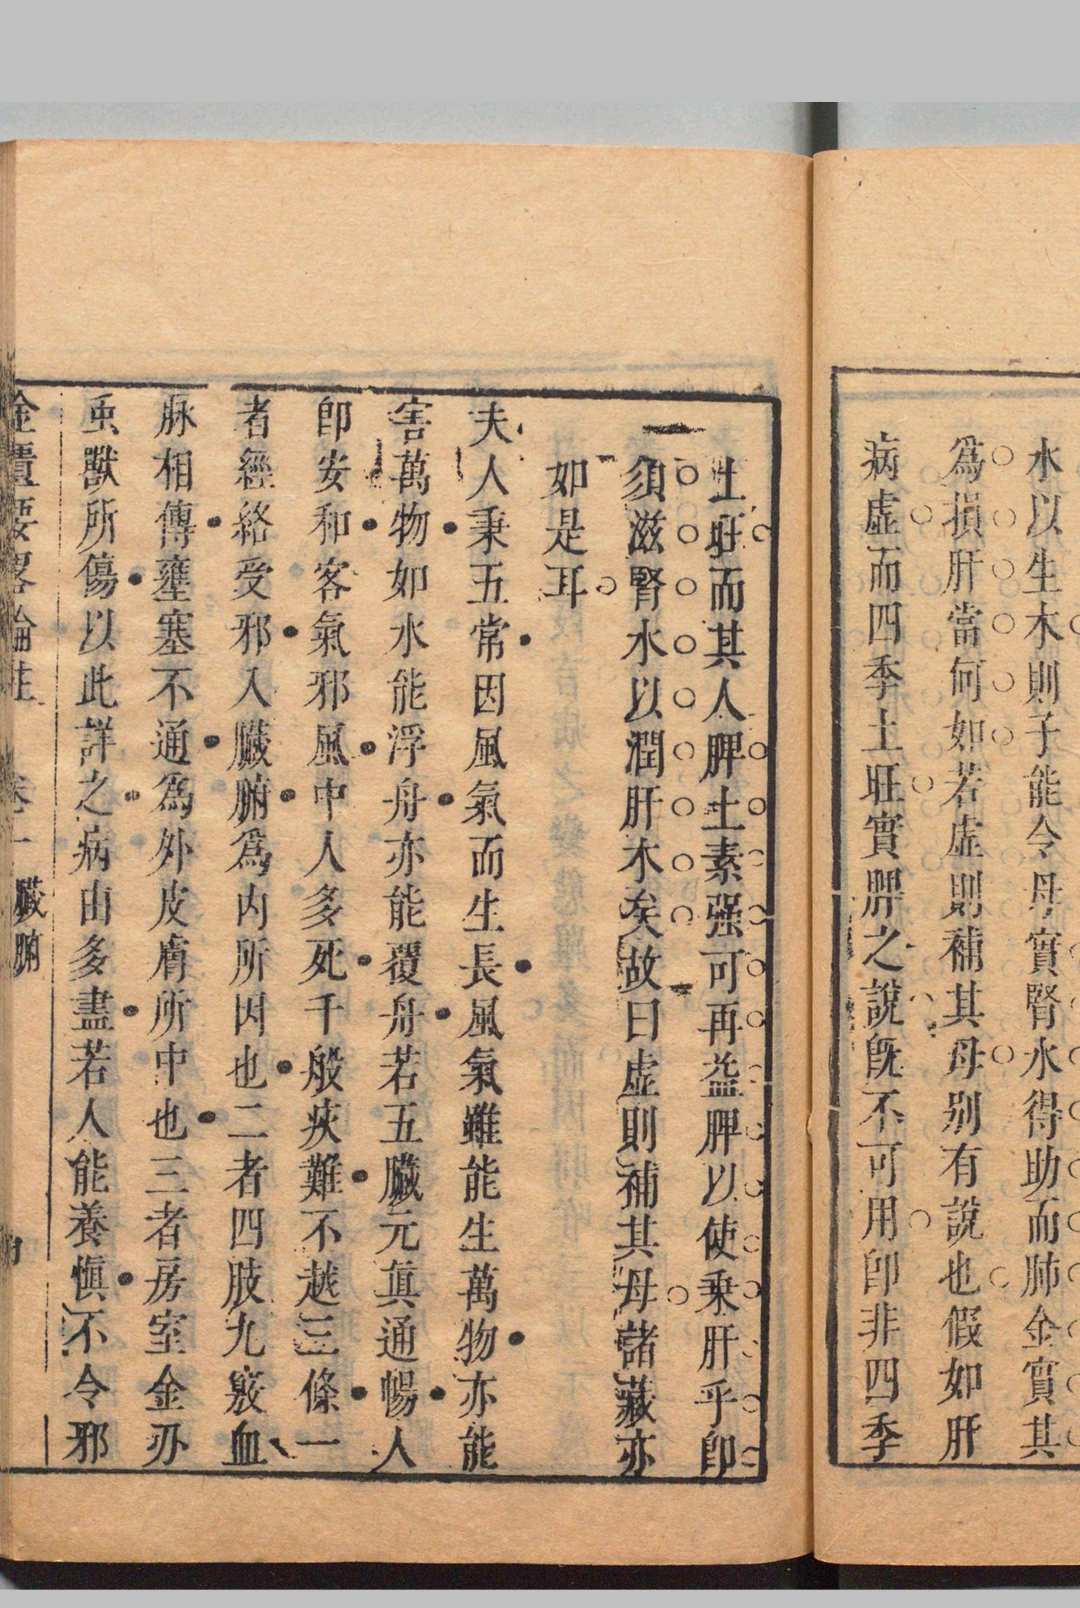 水以生木則子能令母實腎水得助而肺金實其
爲損肝當何如若虛則補其母别有說也假如肝
病虛而四季土旺實脾之說旣不可用卽非四季
土旺而其人脾土素强可再益脾以使乘肝乎卽
須滋腎水以潤肝木矣故曰虛則補其母諸藏亦
如是耳
夫人秉五常因風氣而生長風氣雖能生萬物亦能
害萬物如水能浮舟亦能覆舟若五臟元眞通暢人
卽安和客氣邪風中人多死千般疢難不越三條一
者經絡受邪入臟腑爲内所因也二者四肢九竅血
脉相傳壅塞不通爲外皮膚所中也三者房室金刃
虫獸所傷以此詳之病由多盡若人能養愼不令邪
金匱要畧論註 卷一 臟腑